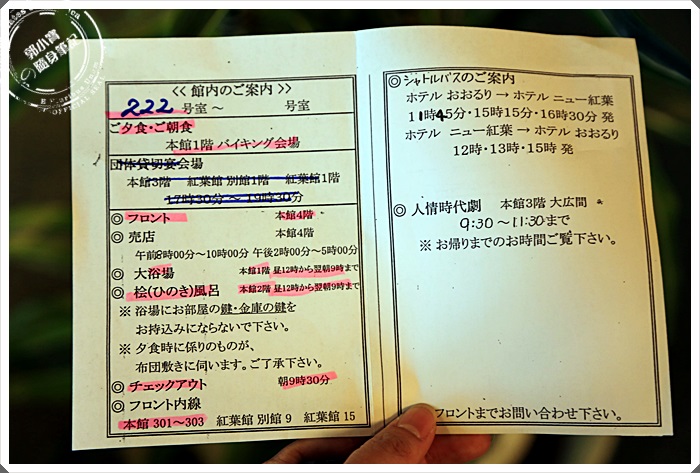 郭小寶
の隨身筆記
<< 館内のご案内 >>
222 号室 ～ 号室
ご夕食・ご朝食
本館1階 バイキング会場
団体貸切宴会場
本館3階 紅葉館 別館1階 紅葉館1階
17時30分 ～ 19時30分
◎ フロント 本館4階
◎ 売店 本館4階
午前8時00分～10時00分 午後2時00分～5時00分
◎ 大浴場 本館1階 昼12時から翌朝9時まで
◎ 桧(ひのき)風呂 本館2階 昼12時から翌朝9時まで
※ 浴場にお部屋の鍵・金庫の鍵を
お持込みにならないで下さい。
※ 夕食時に係りのものが、
布団敷きに伺います。ご了承下さい。
◎ チェックアウト 朝9時30分
◎ フロント内線
本館 301～303 紅葉館 別館 9 紅葉館 15
◎ シャトルバスのご案内
ホテル おおるり → ホテル ニュー紅葉
11時45分・15時15分・16時30分 発
ホテル ニュー紅葉 → ホテル おおるり
12時・13時・15時 発
◎ 人情時代劇 本館3階 大広間
9:30 ～ 11:30まで
※ お帰りまでのお時間ご覧下さい。
フロントまでお問い合わせ下さい。